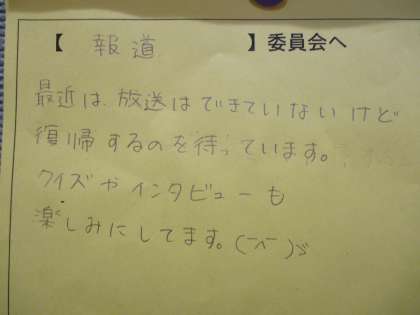 【 報道 】委員会へ
最近は、放送はできていないけど
復帰するのを待っています。
クイズやインタビューも
楽しみにしてます。(¯^¯)ゞ